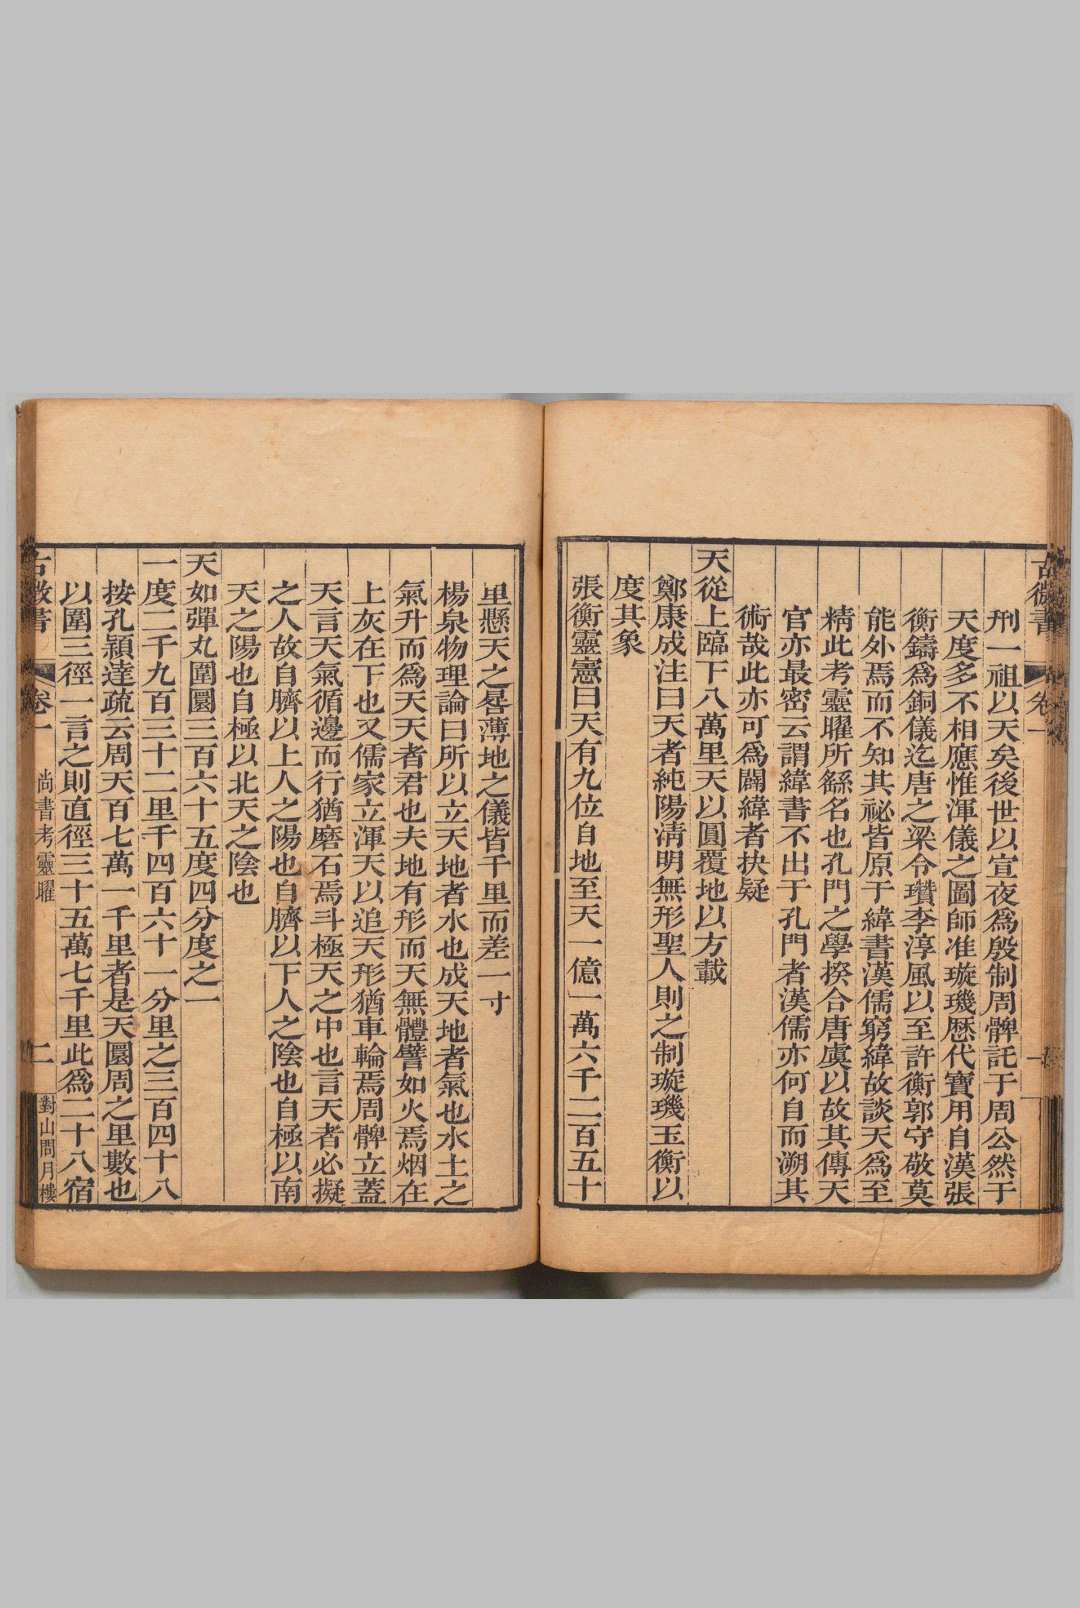 古微書
卷一
一
刑一祖以天矣後世以宣夜爲殷制周髀託于周公然于
天度多不相應惟渾儀之圖師准璇璣歷代寶用自漢張
衡鑄爲銅儀迄唐之梁令瓚李淳風以至許衡郭守敬莫
能外焉而不知其祕皆原于緯書漢儒窮緯故談天爲至
精此考靈曜所繇名也孔門之學揆合唐虞以故其傳天
官亦最密云謂緯書不出于孔門者漢儒亦何自而溯其
術哉此亦可爲闢緯者抉疑
天從上臨下八萬里天以圓覆地以方載
鄭康成注曰天者純陽清明無形聖人則之制璇璣玉衡以
度其象
張衡靈憲曰天有九位自地至天一億一萬六千二百五十
里懸天之晷薄地之儀皆千里而差一寸
楊泉物理論曰所以立天地者水也成天地者氣也水土之
氣升而爲天天者君也夫地有形而天無體譬如火焉烟在
上灰在下也又儒家立渾天以追天形猶車輪焉周髀立蓋
天言天氣循邊而行猶磨石焉斗極天之中也言天者必擬
之人故自臍以上人之陽也自臍以下人之陰也自極以南
天之陽也自極以北天之陰也
天如彈丸圍圜三百六十五度四分度之一
一度二千九百三十二里千四百六十一分里之三百四十八
按孔穎達疏云周天百七萬一千里者是天圜周之里數也
以圍三徑一言之則直徑三十五萬七千里此爲二十八宿
古微書
卷一
尚書考靈曜
二
對山問月樓